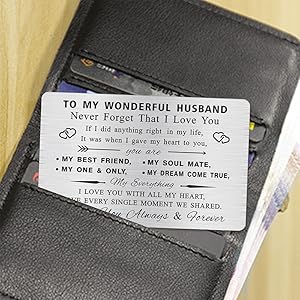 TO MY WONDERFUL HUSBAND
Never Forget That I Love You
If I did anything right in my life,
It was when I gave my heart to you,
you are
• MY BEST FRIEND, • MY SOUL MATE,
• MY ONE & ONLY, • MY DREAM COME TRUE,
My Everything
I LOVE YOU WITH ALL MY HEART,
EVERY SINGLE MOMENT WE SHARED.
Always & Forever